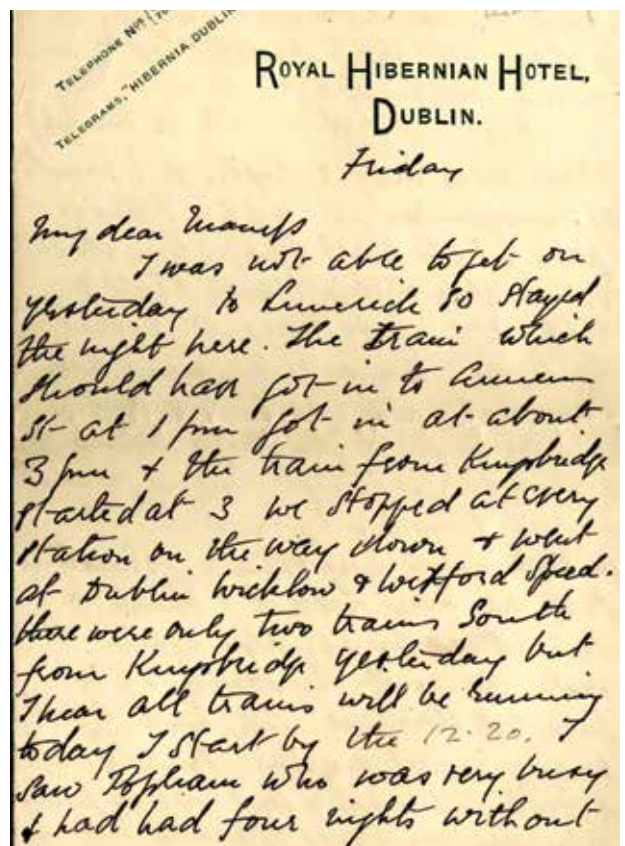 TELEPHONE Nos
TELEGRAMS, "HIBERNIA DUBLIN
ROYAL HIBERNIAN HOTEL,
DUBLIN.
Friday
My dear
I was not able to get on
yesterday to Limerick so stayed
the night here. The train which
should have got in to Amiens
St at 1 pm got in at about
3 pm & the train from Kingsbridge
started at 3 we stopped at every
station on the way down & went
at Dublin Wicklow & Wexford speed.
there were only two trains South
from Kingsbridge yesterday but
I hear all trains will be running
today I start by the 12.20. I
saw Popham who was very busy
& had had four nights without